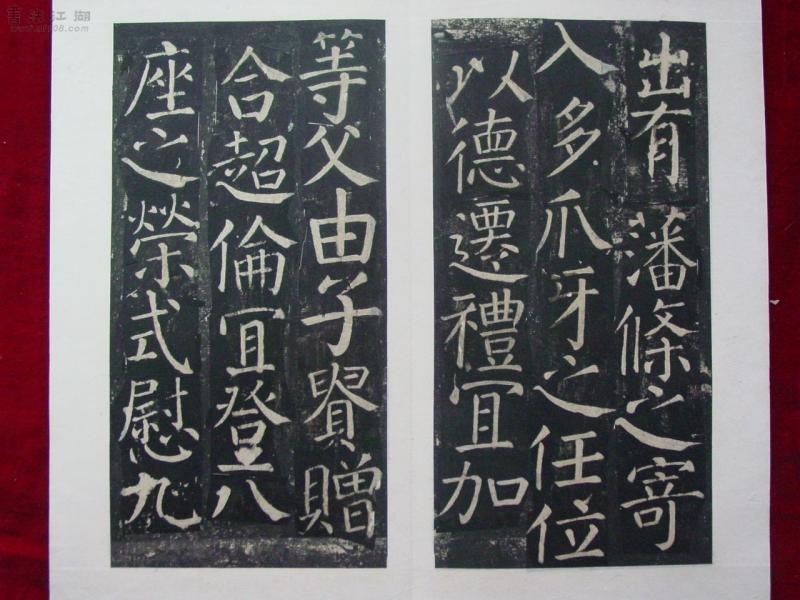 出有藩條之寄
入多爪牙之任位
以德遷禮宜加
等父由子貴贈
合超倫宜登八
座之榮式慰九